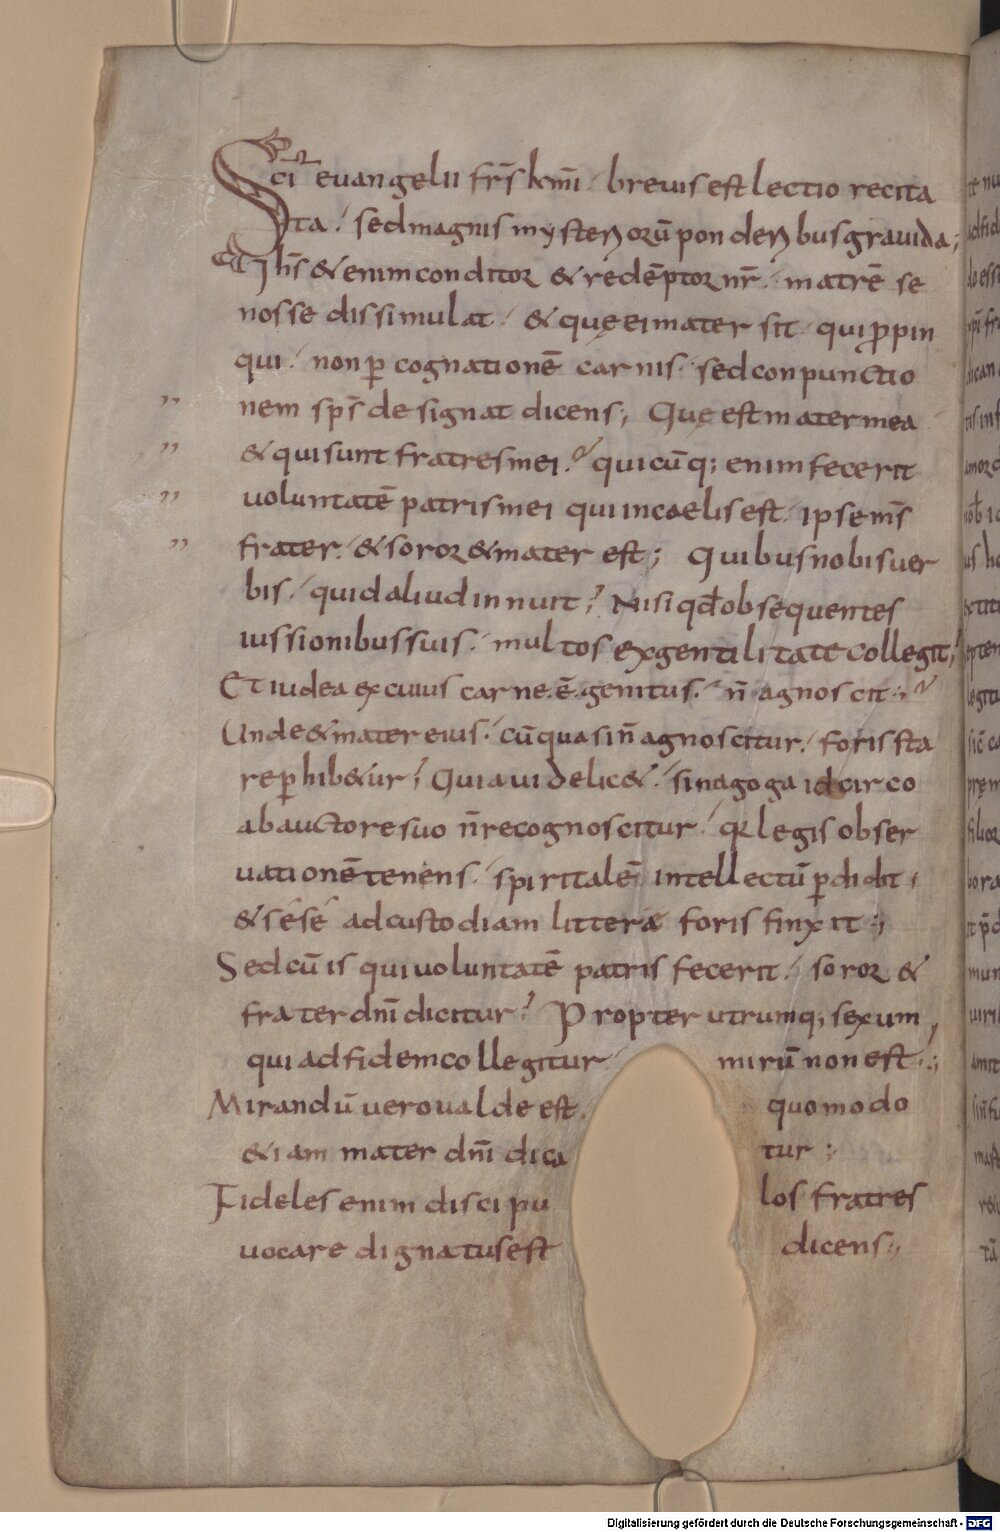 Sci evangelii frs̄ km̄i· breuis est lectio recita
ta· sed magnis mysterioru̅ ponderibus grauida;
Ih̅s & enim conditor & rede̅ptor nr̅· matre̅ se
nosse dissimulat· & quę ei mater sit· qui ꝓpin
qui· non ꝑ cognatione̅ carnis· sed conpunctio
" nem sps̅ designat dicens; Que est mater mea
" & qui sunt fratres mei? quicu̅q; enim fecerit
" uoluntate̅ patris mei qui in caelis est· ipse ms̅
" frater· & soror & mater est; Quibus nobis uer
bis· quid aliud innuit? Nisi qd̅ obsequentes
iussionibus suis· multos ex gentilitate collegit;
Et iudea ex cuius carne· e̅· genitus· n̅ agnoscit;
Unde & mater eius· cu̅ quasi n̅ agnoscitur· foris sta
re ꝑhib&ur? Quia uidelic&· sinagoga idcirco
ab auctore suo n̅ recognoscitur· qr legis obser
uatione̅ tenens· spiritale̅ intellectu̅ ꝑdidit;
& sése ad custodiam litterae foris finxit;
Sed cu̅ is qui uoluntate̅ patris fecerit· soror &
frater dn̅i dicitur? Propter utrumq; sexum
qui ad fidem collegitur miru̅ non est;
Mirandu̅ uero ualde est· quomodo
& iam mater dn̅i dica tur;
Fideles enim discipu los fratres
uocare dignatus est dicens;
Digitalisierung gefördert durch die Deutsche Forschungsgemeinschaft - DFG